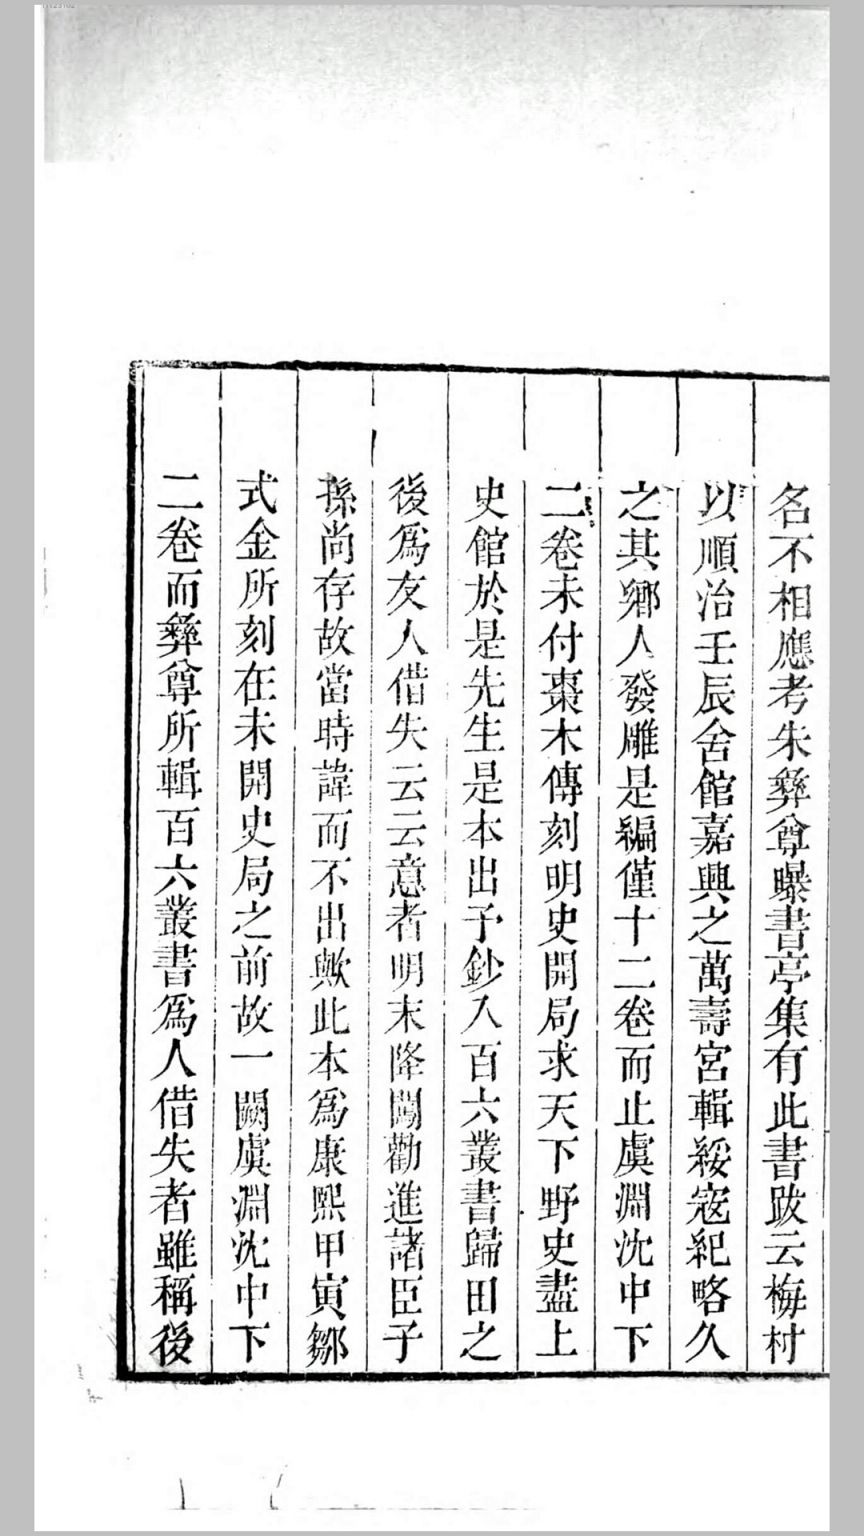 名不相應考朱彝尊曝書亭集有此書跋云梅村
以順治壬辰舍館嘉興之萬壽宮輯綏寇紀略久
之其鄉人發雕是編僅十二卷而止虞淵沈中下
二卷未付棗木傳刻明史開局求天下野史盡上
史館於是先生是本出予鈔入百六叢書歸田之
後爲友人借失云云意者明末降闖勸進諸臣子
孫尚存故當時諱而不出歟此本爲康熙甲寅鄒
式金所刻在未開史局之前故一闕虞淵沈中下
二卷而彝尊所輯百六叢書爲人借失者雖稱後